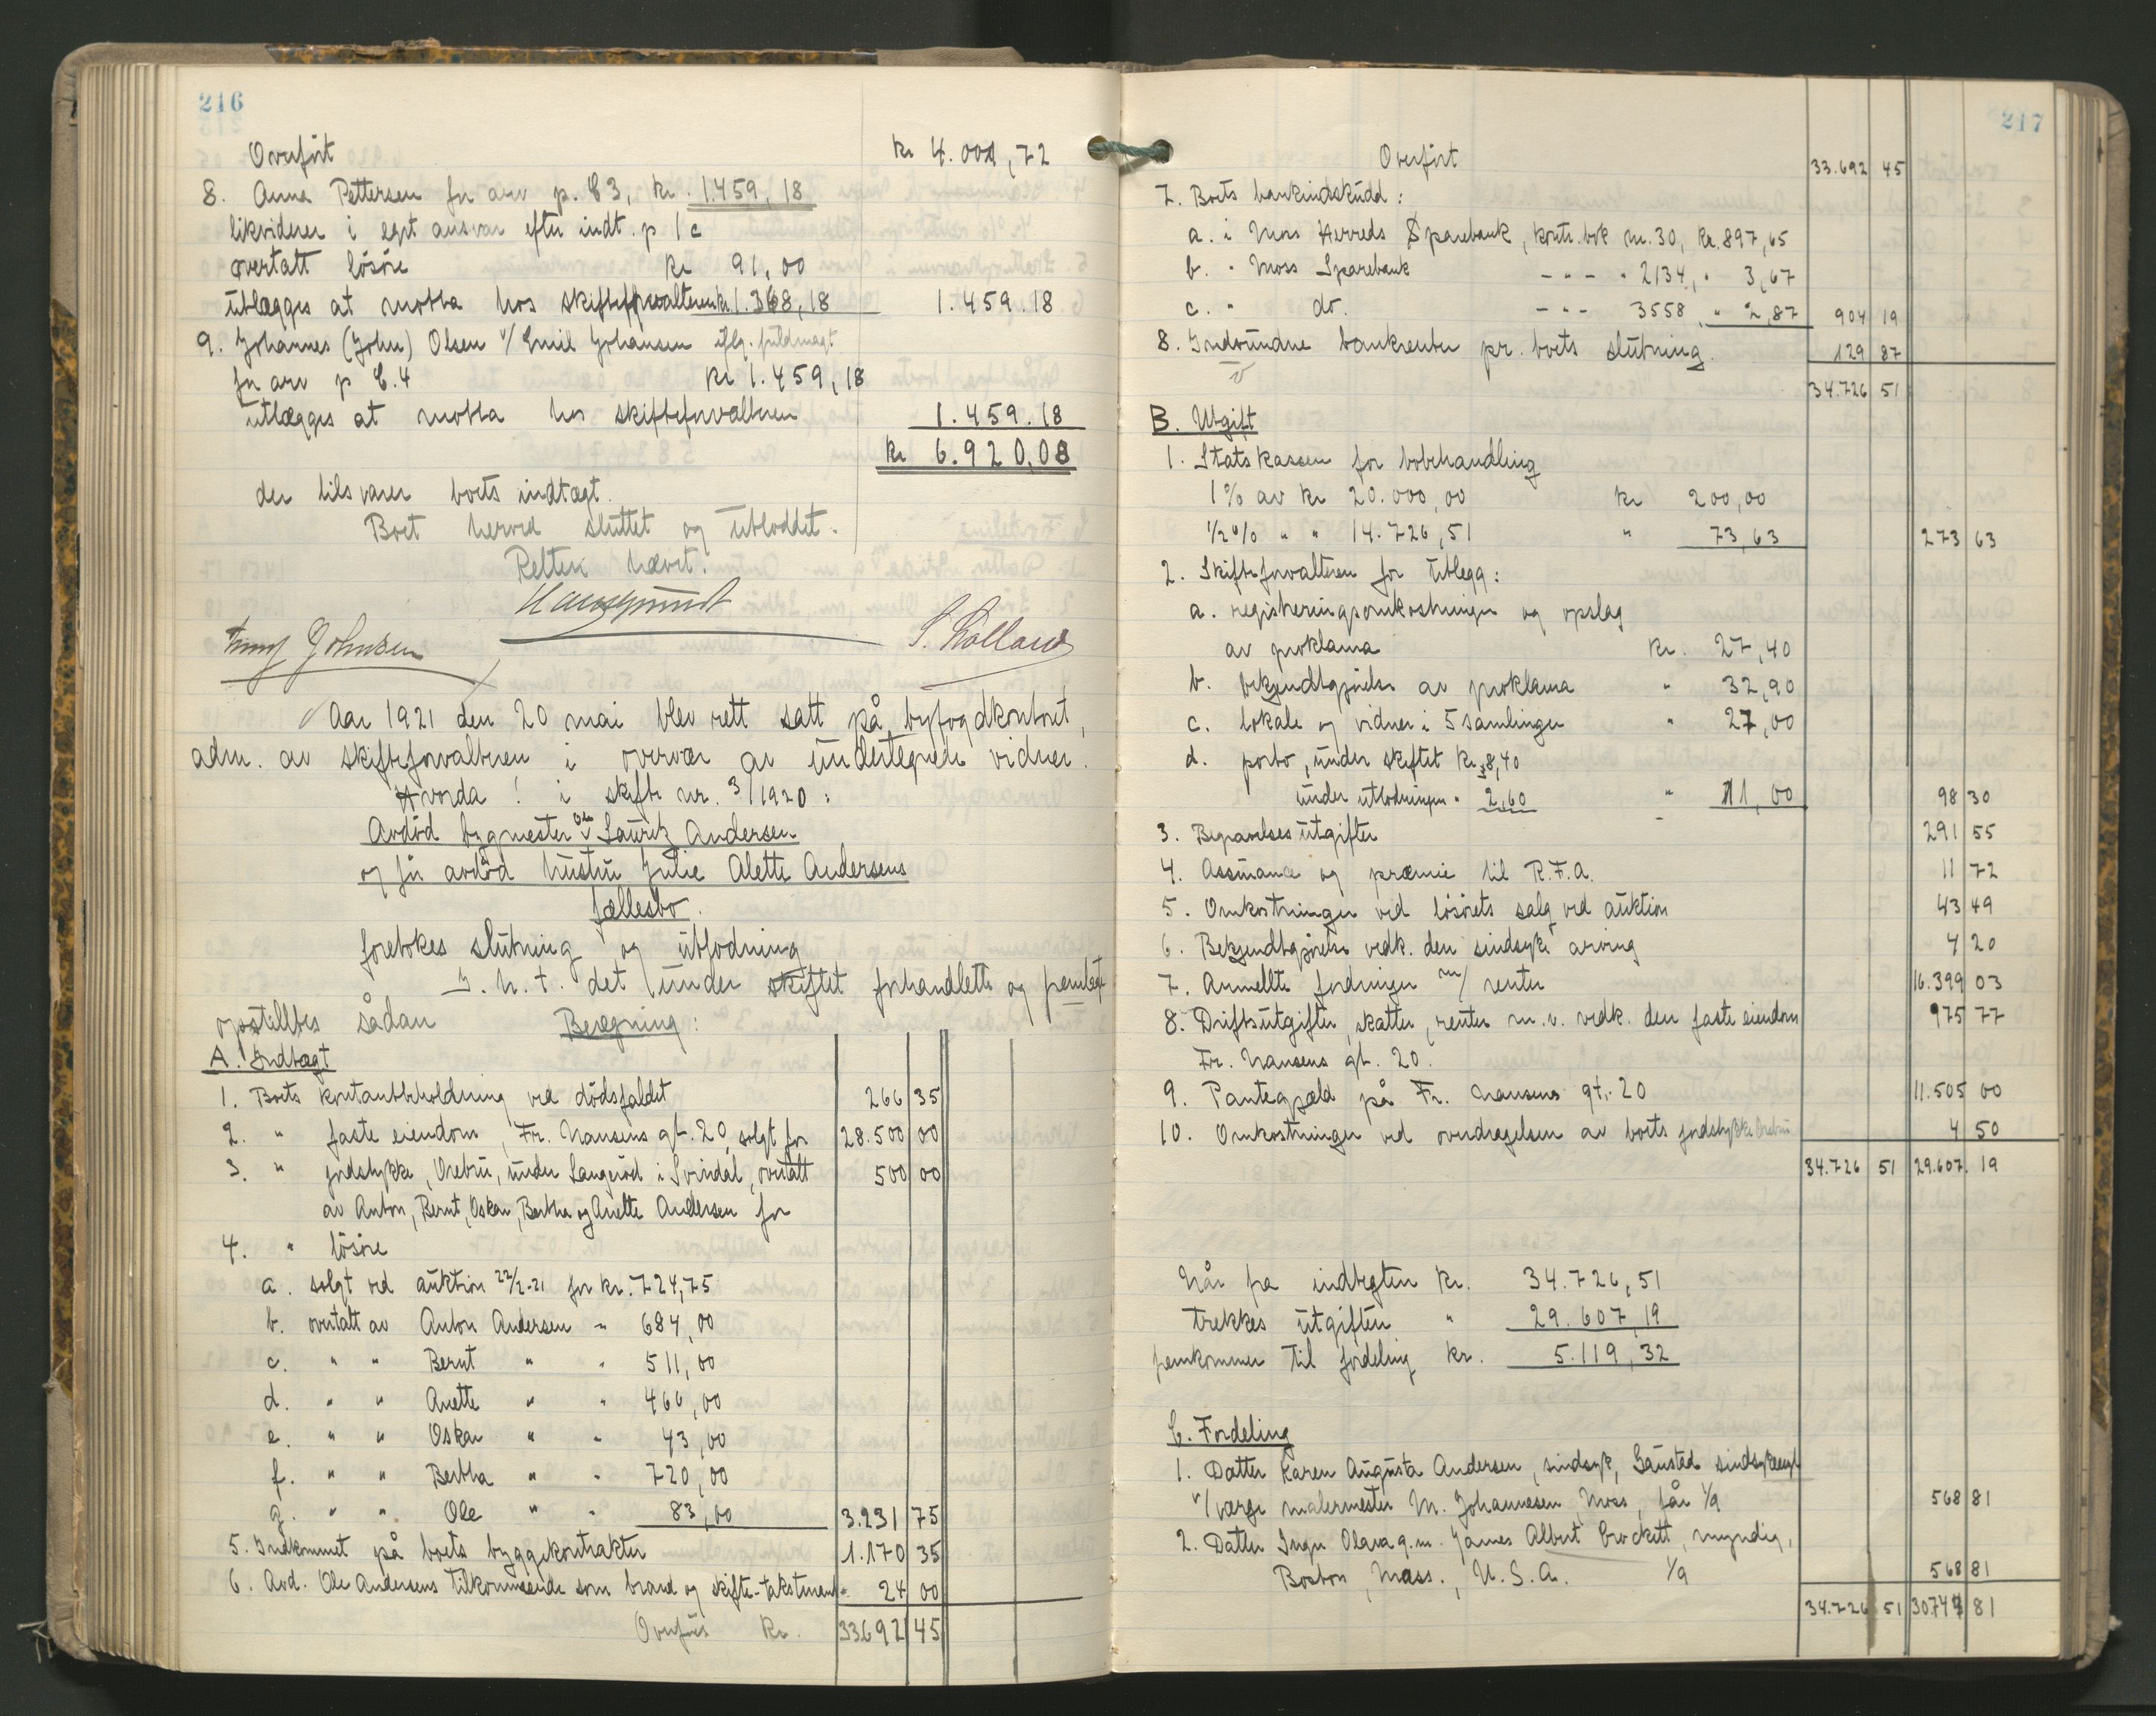 216
Overført kr 4.001,72
8. Anna Pettersen for arv p. C3, kr. 1.459,18
likviderer i eget ansvar efter indt. p 1c
overtatt løsøre kr 91,00
utlægges at motta hos skifteforvalteren kr 1.368,18 1.459.18
9. Johannes (John) Olsen v/ Emil Johansen iflg. fuldmagt
for arv p C.4 kr 1.459,18
utlægges at motta hos skifteforvalteren 1.459.18
kr 6.920,08
der tilsvarer boets indtægt.
Boet herved sluttet og utloddet.
Retten hævet.
Johnsen S. Holland
Aar 1921 den 20 mai blev rett satt på byfogdkontoret,
adm. av skifteforvalteren i overvær av undertegnede vidner.
Hvorda! i skifte nr. 3/1920:
Avdød bygmester Ole Lauritz Andersen
og før avdød hustru Julie Alette Andersens
fællesbo.
foretokes slutning og utlodning
I. h. t. det under skiftet forhandlette og fremlagte
opstilltes sådan Beregning:
A. Indtægt
1. Boets kontantbeholdning ved dødsfaldet 266 35
2. " faste eiendom, Fr. Nansens gt. 20, solgt for 28.500 00
3. " jordstykke, Orebru, under Langerød i Svindal, overtatt 500 00
av Anton, Bernt, Oskar, Bertha og Anette Andersen for
4. " løsøre
a. solgt ved auktion 22/2-21 for kr. 724,75
b. overtatt av Anton Andersen " 684,00
c. " " Bernt " " 511,00
d. " " Anette " " 466,00
e. " " Oskar " " 43,00
f. " " Bertha " " 720,00
g. " " Ole " " 83,00 3.231 75
5. Indkommet på boets byggekontrakter 1.170 35
6. Avd. Ole Andersens tilkommende som brand og skifte-takstmand 24 00
Overføres kr. 33.692 45
217
Overført 33.692 45
7. Boets bankindskudd:
a. i Moss Herreds Sparebank, kontr.bok nr. 30, kr. 897,65
b. " Moss Sparebank - " - " 2134, " 3,67
c. " do. - " - 3558 " 2,87 904 19
8. Indvundne bankrenter pr. boets slutning. 129 87
34.726 51
B. Utgift
1. Statskassen for bobehandling
1% av kr 20.000,00 kr 200,00
1/2% " " 14.726,51 " 73,63 273 63
2. Skifteforvalteren for utlegg:
a. registreringsomkostninger og opslag
av proklama kr. 27,40
b. bekjendtgjørelse av proklama " 32,90
c. lokale og vidner i 5 samlinger " 27,00
d. porto, under skiftet kr. 8,40
under utlodningen " 2,60 " 11,00 98 30
3. Begravelsesutgifter 291 55
4. Assurance og præmie til R.F.A. 11 72
5. Omkostninger ved løsørets salg ved auktion 43 49
6. Bekjendtgjørelse vedk. den sindsyke arving 4 20
7. Anmeldte fordringer m/ renter 16.399 03
8. Driftsutgifter, skatter, renter m.v. vedk. den faste eiendom 975 77
Fr. Nansens gt. 20.
9. Pantegjæld på Fr. Nansens gt. 20 11.505 00
10. Omkostninger ved overdragelsen av boets jordstykke Orebru 4 50
34.726 51 29.607 19
Når fra indtægten kr. 34.726,51
trekkes utgiften " 29.607,19
fremkommer til fordeling kr. 5.119,32
C. Fordeling
1. Datter Karen Augusta Andersen, sindsyk, Gaustad sindsykeasyl
v/ verge malermester M. Johannesen, Moss, får 1/9 568 81
2. Datter Inga Olava g.m. James Albert Crockett, myndig,
Boston, Mass., U.S.A. 1/9 568 81
34.726 51 30.744 81